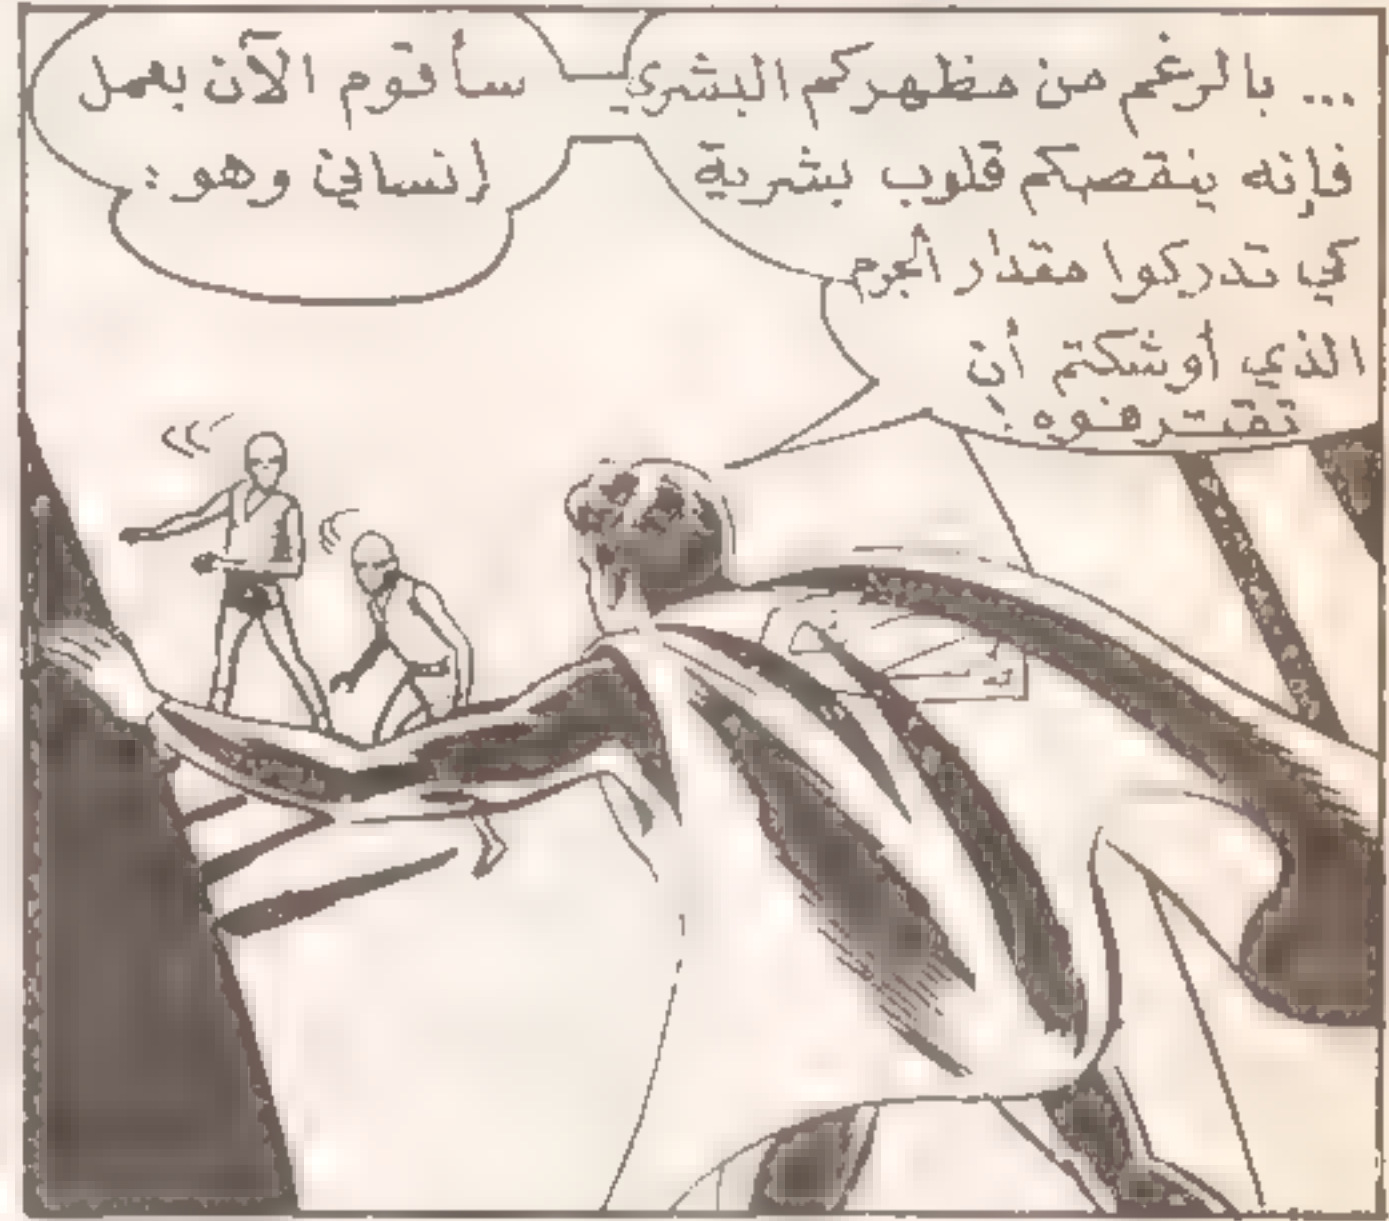 ... بالرغم من مظهركم البشري
فإنه ينقصكم قلوب بشرية
كي تدركوا مقدار الجرم
الذي أوشكتم أن
تقترفوه!
سأقوم الآن بعمل
إنساني وهو: